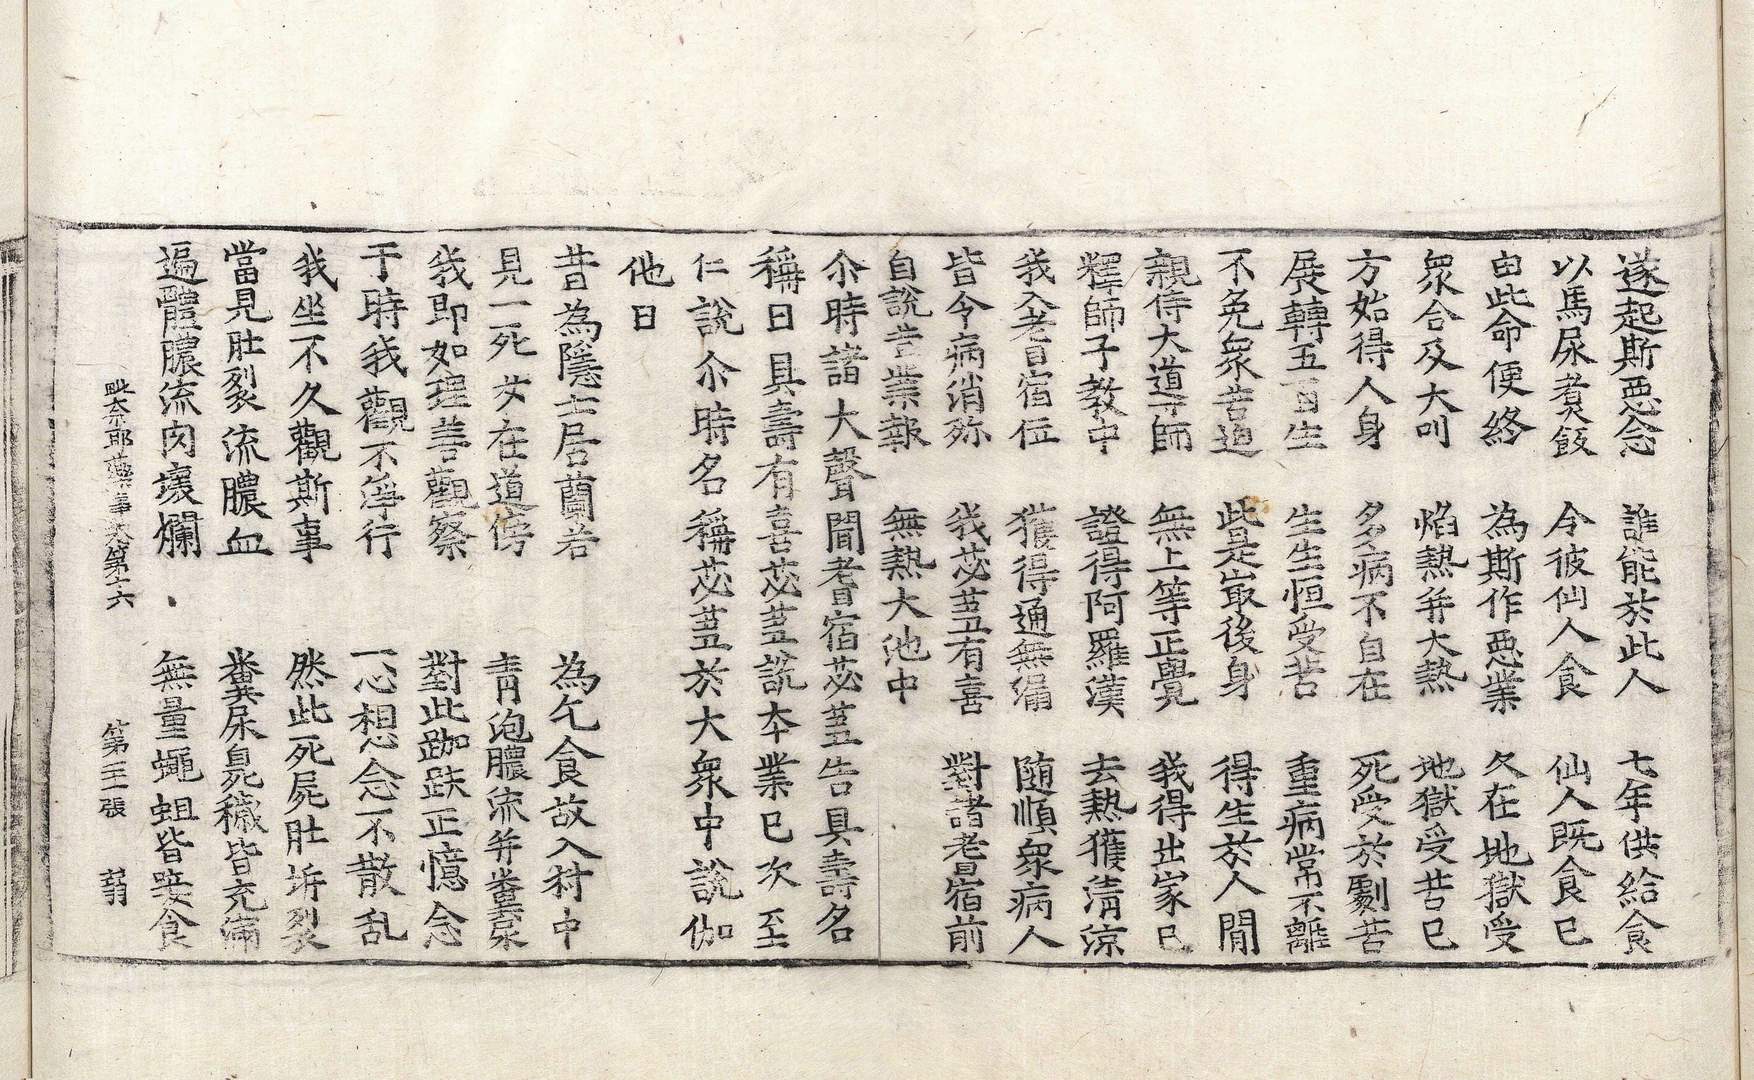 遂起斯惡念 誰能於此人 七年供給食
以馬尿煑飯 令彼仙人食 仙人既食已
由此命便終 為斯作惡業 久在地獄受
衆合及大叫 焰熱并大熱 地獄受苦已
方始得人身 多病不自在 死受於劇苦
展轉五百生 生生恒受苦 重病常不離
不免衆苦迫 此是㝡後身 得生於人間
親侍大導師 無上等正覺 我得出家已
釋師子教中 證得阿羅漢 去熱獲清涼
我入耆宿位 獲得通無漏 随順衆病人
皆令病消殄 我苾芻有喜 對諸耆宿前
自說昔業報 無熱大池中
尒時諸大聲聞耆宿苾芻告具壽名
稱曰具壽有喜苾芻說本業已次至
仁說尒時名稱苾芻於大衆中說伽
他曰
昔為隱士居蘭若 為乞食故入村中
見一死女在道傍 青皰膿流并糞尿
我即如理善觀察 對此跏趺正憶念
于時我觀不淨行 一心想念不散乱
我坐不久觀斯事 然此死屍肚坼裂
當見肚裂流膿血 糞尿臭穢皆充滿
遍體膿流肉壞爛 無量蠅蛆皆唼食
毗奈耶藥事卷第十六 第二十一張 翦